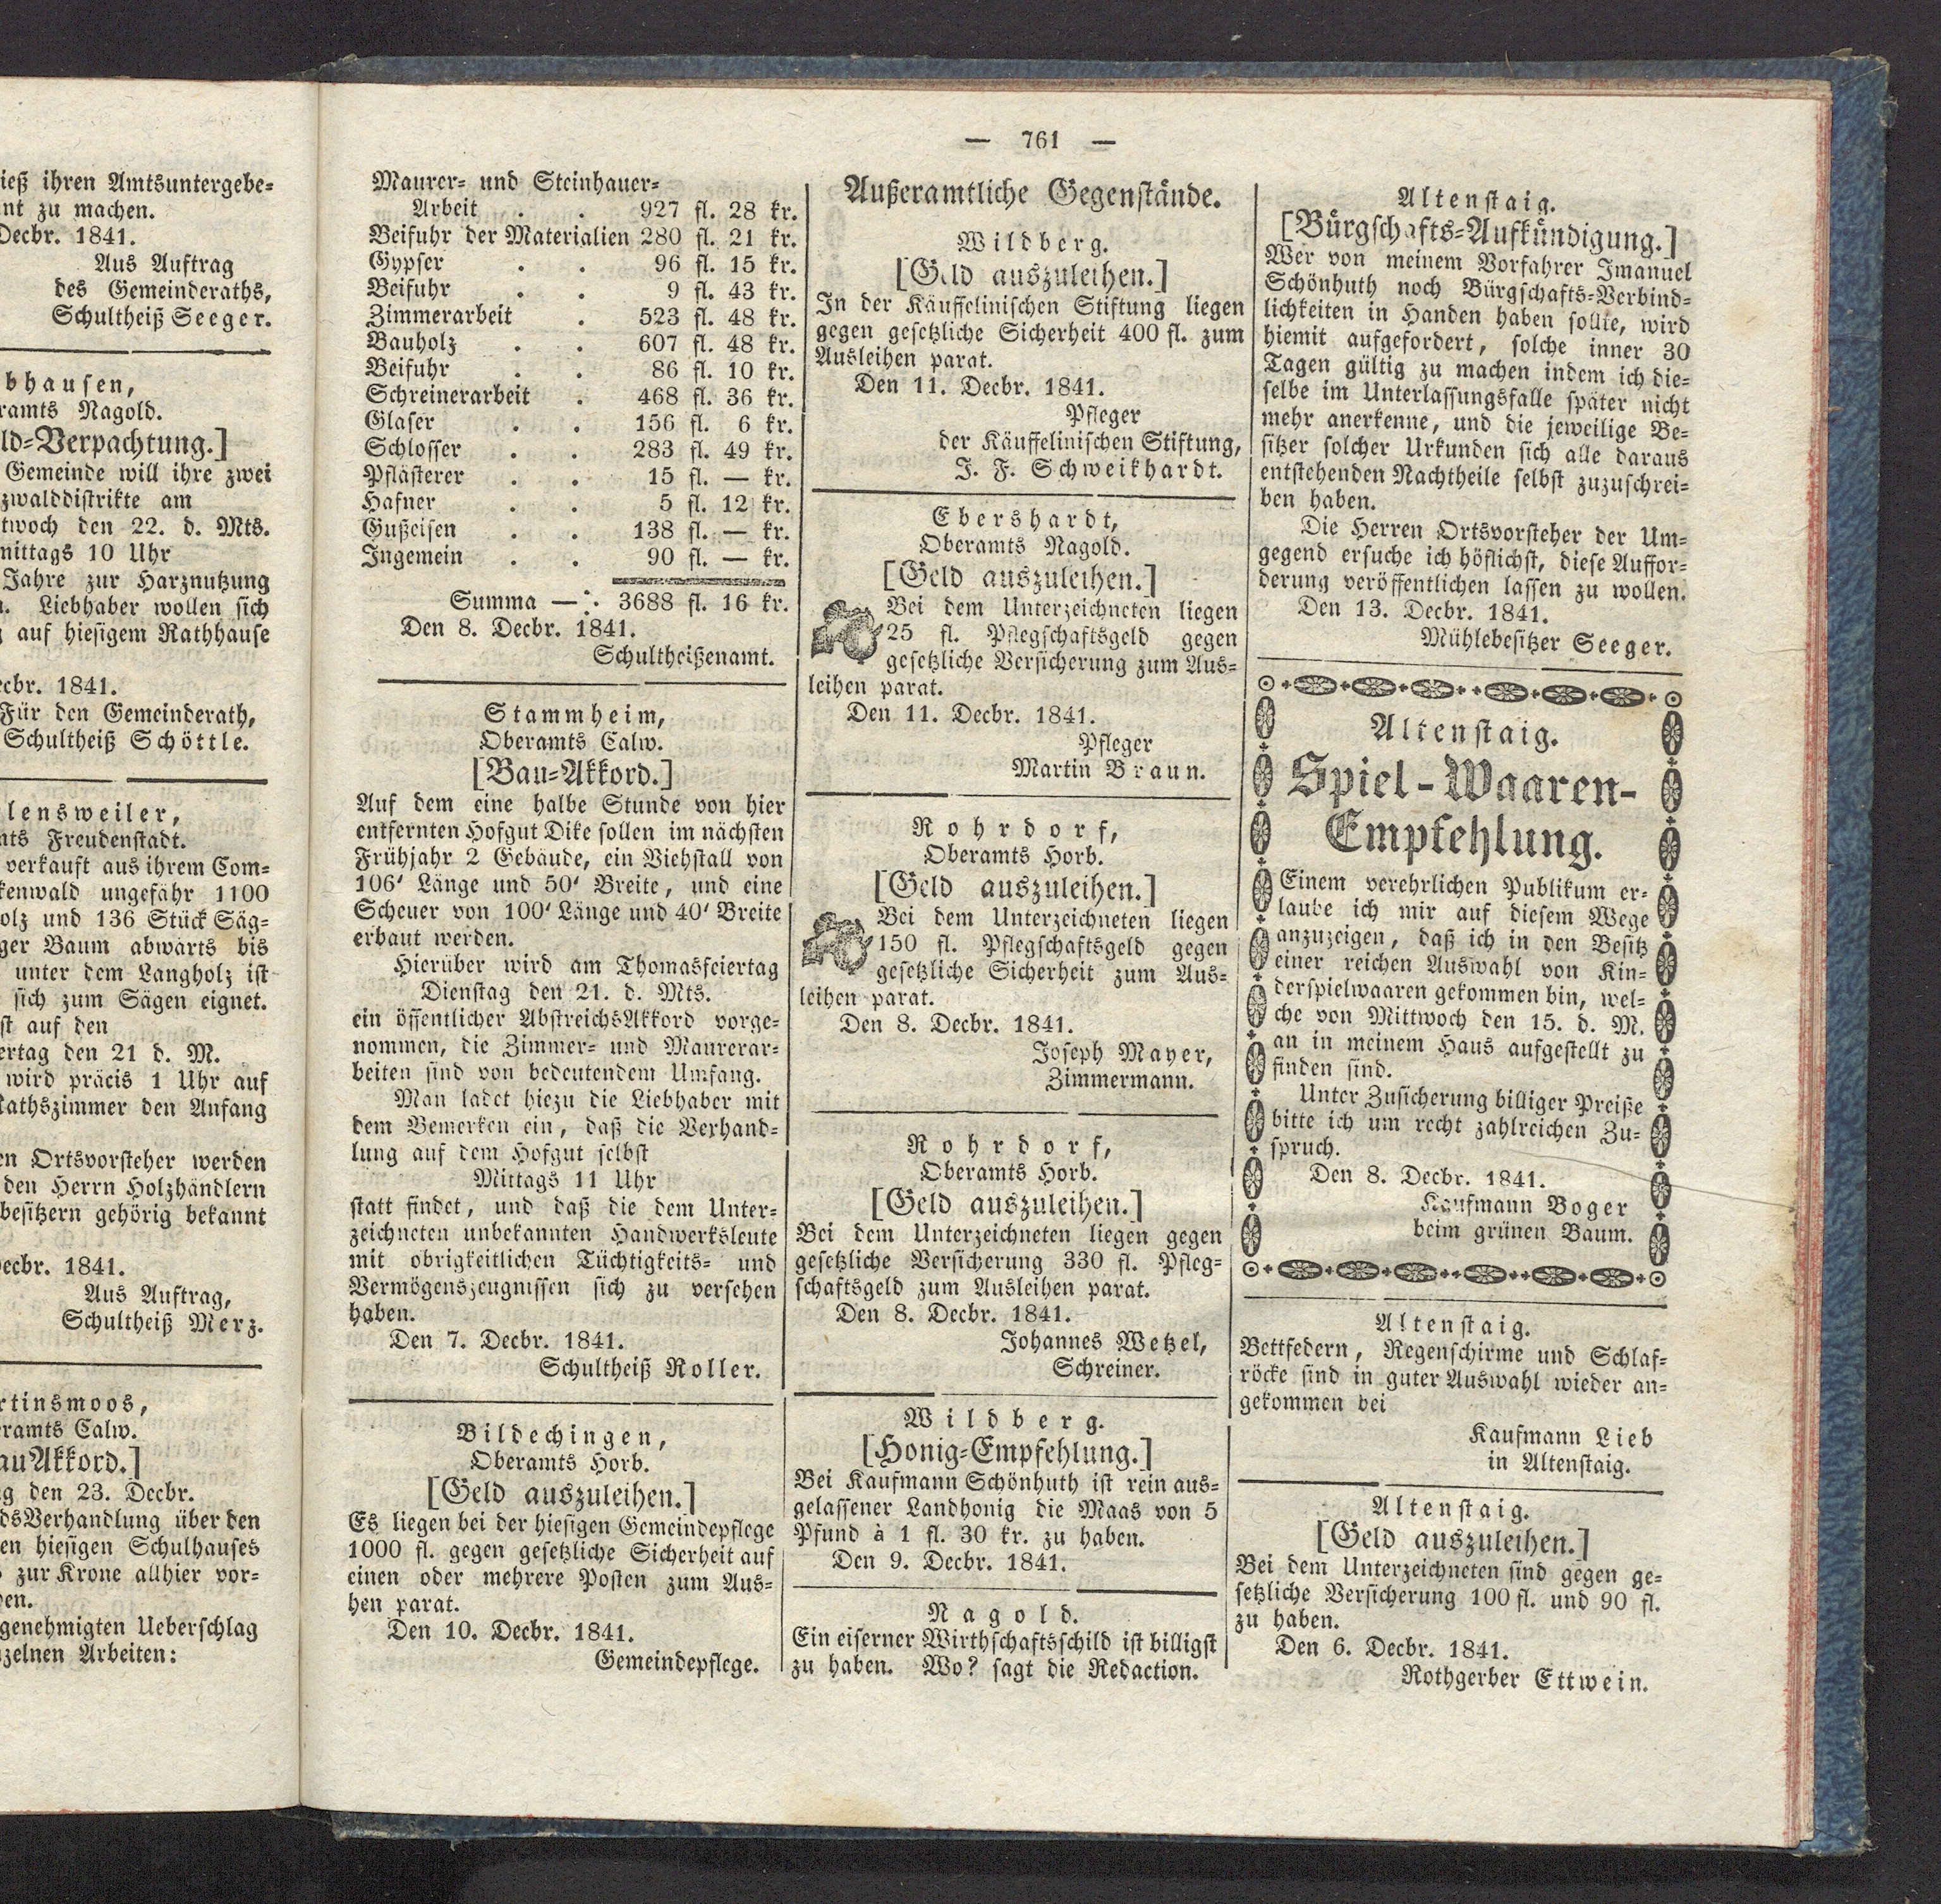 ieß ihren Amtsuntergebe-
nt zu machen.
Decbr. 1841.
Aus Auftrag
des Gemeinderaths,
Schultheiß Seeger.
bhausen,
ramts Nagold.
ld-Verpachtung.]
Gemeinde will ihre zwei
zwalddistrikte am
twoch den 22. d. Mts.
mittags 10 Uhr
Jahre zur Harznutzung
n. Liebhaber wollen sich
g auf hiesigem Rathhause
ecbr. 1841.
Für den Gemeinderath,
Schultheiß Schöttle.
lensweiler,
mts Freudenstadt.
verkauft aus ihrem Com-
kenwald ungefähr 1100
olz und 136 Stück Säg-
ger Baum abwärts bis
unter dem Langholz ist
sich zum Sägen eignet.
st auf den
ertag den 21 d. M.
wird präcis 1 Uhr auf
Rathszimmer den Anfang
en Ortsvorsteher werden
den Herrn Holzhändlern
besitzern gehörig bekannt
Decbr. 1841.
Aus Auftrag,
Schultheiß Merz.
rtinsmoos,
eramts Calw.
auAkkord.]
g den 23. Decbr.
dsVerhandlung über den
en hiesigen Schulhauses
zur Krone allhier vor-
en.
genehmigten Ueberschlag
zelnen Arbeiten:
— 761 —
Maurer- und Steinhauer-
Arbeit . . 927 fl. 28 kr.
Beifuhr der Materialien 280 fl. 21 kr.
Gypser . . 96 fl. 15 kr.
Beifuhr . . 9 fl. 43 kr.
Zimmerarbeit . 523 fl. 48 kr.
Bauholz . . 607 fl. 48 kr.
Beifuhr . . 86 fl. 10 kr.
Schreinerarbeit . 468 fl. 36 kr.
Glaser . . 156 fl. 6 kr.
Schlosser . . 283 fl. 49 kr.
Pflästerer . . 15 fl. — kr.
Hafner . . 5 fl. 12 kr.
Gußeisen . . 138 fl. — kr.
Ingemein . . 90 fl. — kr.
Summa —∴ 3688 fl. 16 kr.
Den 8. Decbr. 1841.
Schultheißenamt.
Stammheim,
Oberamts Calw.
[Bau-Akkord.]
Auf dem eine halbe Stunde von hier
entfernten Hofgut Dike sollen im nächsten
Frühjahr 2 Gebäude, ein Viehstall von
106' Länge und 50' Breite, und eine
Scheuer von 100' Länge und 40' Breite
erbaut werden.
Hierüber wird am Thomasfeiertag
Dienstag den 21. d. Mts.
ein öffentlicher AbstreichsAkkord vorge-
nommen, die Zimmer- und Maurerar-
beiten sind von bedeutendem Umfang.
Man ladet hiezu die Liebhaber mit
dem Bemerken ein, daß die Verhand-
lung auf dem Hofgut selbst
Mittags 11 Uhr
statt findet, und daß die dem Unter-
zeichneten unbekannten Handwerksleute
mit obrigkeitlichen Tüchtigkeits- und
Vermögenszeugnissen sich zu versehen
haben.
Den 7. Decbr. 1841.
Schultheiß Roller.
Bildechingen,
Oberamts Horb.
[Geld auszuleihen.]
Es liegen bei der hiesigen Gemeindepflege
1000 fl. gegen gesetzliche Sicherheit auf
einen oder mehrere Posten zum Aus-
hen parat.
Den 10. Decbr. 1841.
Gemeindepflege.
Außeramtliche Gegenstände.
Wildberg.
[Geld auszuleihen.]
In der Käuffelinischen Stiftung liegen
gegen gesetzliche Sicherheit 400 fl. zum
Ausleihen parat.
Den 11. Decbr. 1841.
Pfleger
der Käuffelinischen Stiftung,
J. F. Schweikhardt.
Ebershardt,
Oberamts Nagold.
[Geld auszuleihen.]
Bei dem Unterzeichneten liegen
25 fl. Pflegschaftsgeld gegen
gesetzliche Versicherung zum Aus-
leihen parat.
Den 11. Decbr. 1841.
Pfleger
Martin Braun.
Rohrdorf,
Oberamts Horb.
[Geld auszuleihen.]
Bei dem Unterzeichneten liegen
150 fl. Pflegschaftsgeld gegen
gesetzliche Sicherheit zum Aus-
leihen parat.
Den 8. Decbr. 1841.
Joseph Mayer,
Zimmermann.
Rohrdorf,
Oberamts Horb.
[Geld auszuleihen.]
Bei dem Unterzeichneten liegen gegen
gesetzliche Versicherung 330 fl. Pfleg-
schaftsgeld zum Ausleihen parat.
Den 8. Decbr. 1841.
Johannes Wetzel,
Schreiner.
Wildberg.
[Honig-Empfehlung.]
Bei Kaufmann Schönhuth ist rein aus-
gelassener Landhonig die Maas von 5
Pfund à 1 fl. 30 kr. zu haben.
Den 9. Decbr. 1841.
Nagold.
Ein eiserner Wirthschaftsschild ist billigst
zu haben. Wo? sagt die Redaction.
Altenstaig.
[Bürgschafts-Aufkündigung.]
Wer von meinem Vorfahrer Imanuel
Schönhuth noch Bürgschafts-Verbind-
lichkeiten in Handen haben sollte, wird
hiemit aufgefordert, solche inner 30
Tagen gültig zu machen indem ich die-
selbe im Unterlassungsfalle später nicht
mehr anerkenne, und die jeweilige Be-
sitzer solcher Urkunden sich alle daraus
entstehenden Nachtheile selbst zuzuschrei-
ben haben.
Die Herren Ortsvorsteher der Um-
gegend ersuche ich höflichst, diese Auffor-
derung veröffentlichen lassen zu wollen.
Den 13. Decbr. 1841.
Mühlebesitzer Seeger.
Altenstaig.
Spiel-Waaren-
Empfehlung.
Einem verehrlichen Publikum er-
laube ich mir auf diesem Wege
anzuzeigen, daß ich in den Besitz
einer reichen Auswahl von Kin-
derspielwaaren gekommen bin, wel-
che von Mittwoch den 15. d. M.
an in meinem Haus aufgestellt zu
finden sind.
Unter Zusicherung billiger Preiße
bitte ich um recht zahlreichen Zu-
spruch.
Den 8. Decbr. 1841.
Kaufmann Boger
beim grünen Baum.
Altenstaig.
Bettfedern, Regenschirme und Schlaf-
röcke sind in guter Auswahl wieder an-
gekommen bei
Kaufmann Lieb
in Altenstaig.
Altenstaig.
[Geld auszuleihen.]
Bei dem Unterzeichneten sind gegen ge-
setzliche Versicherung 100 fl. und 90 fl.
zu haben.
Den 6. Decbr. 1841.
Rothgerber Ettwein.